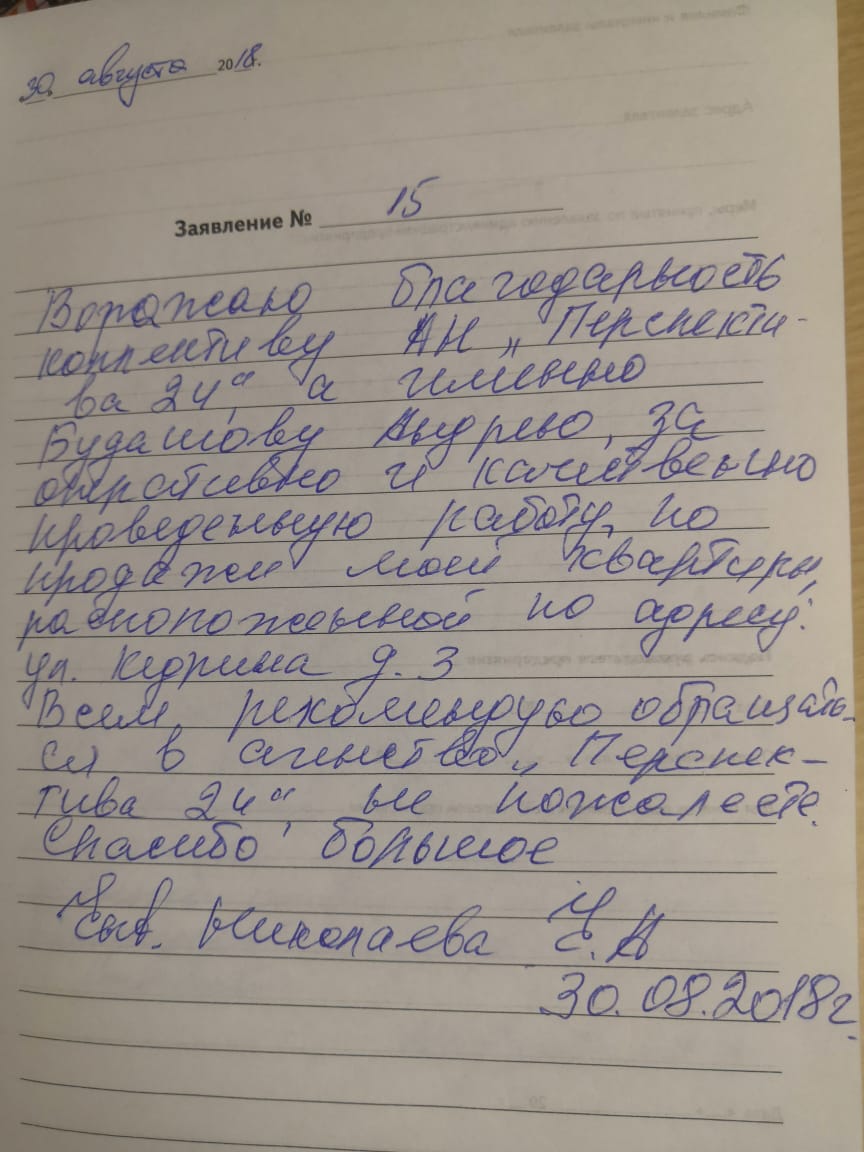 30. августа 2018.
Заявление № 15
Воражаю благодарность
коллективу АН „Перспекти-
ва 24“, а именно
Будашову Андрею, за
оперативно и качественно
проведенную работу, по
продажи моей квартиры,
расположенной по адресу:
ул. Кедрина д. 3
Всем, рекомендую обращать-
ся в агенство „Перспек-
тива 24“ не пожалеете.
Спасибо большое
Николаева
30.08.2018г.